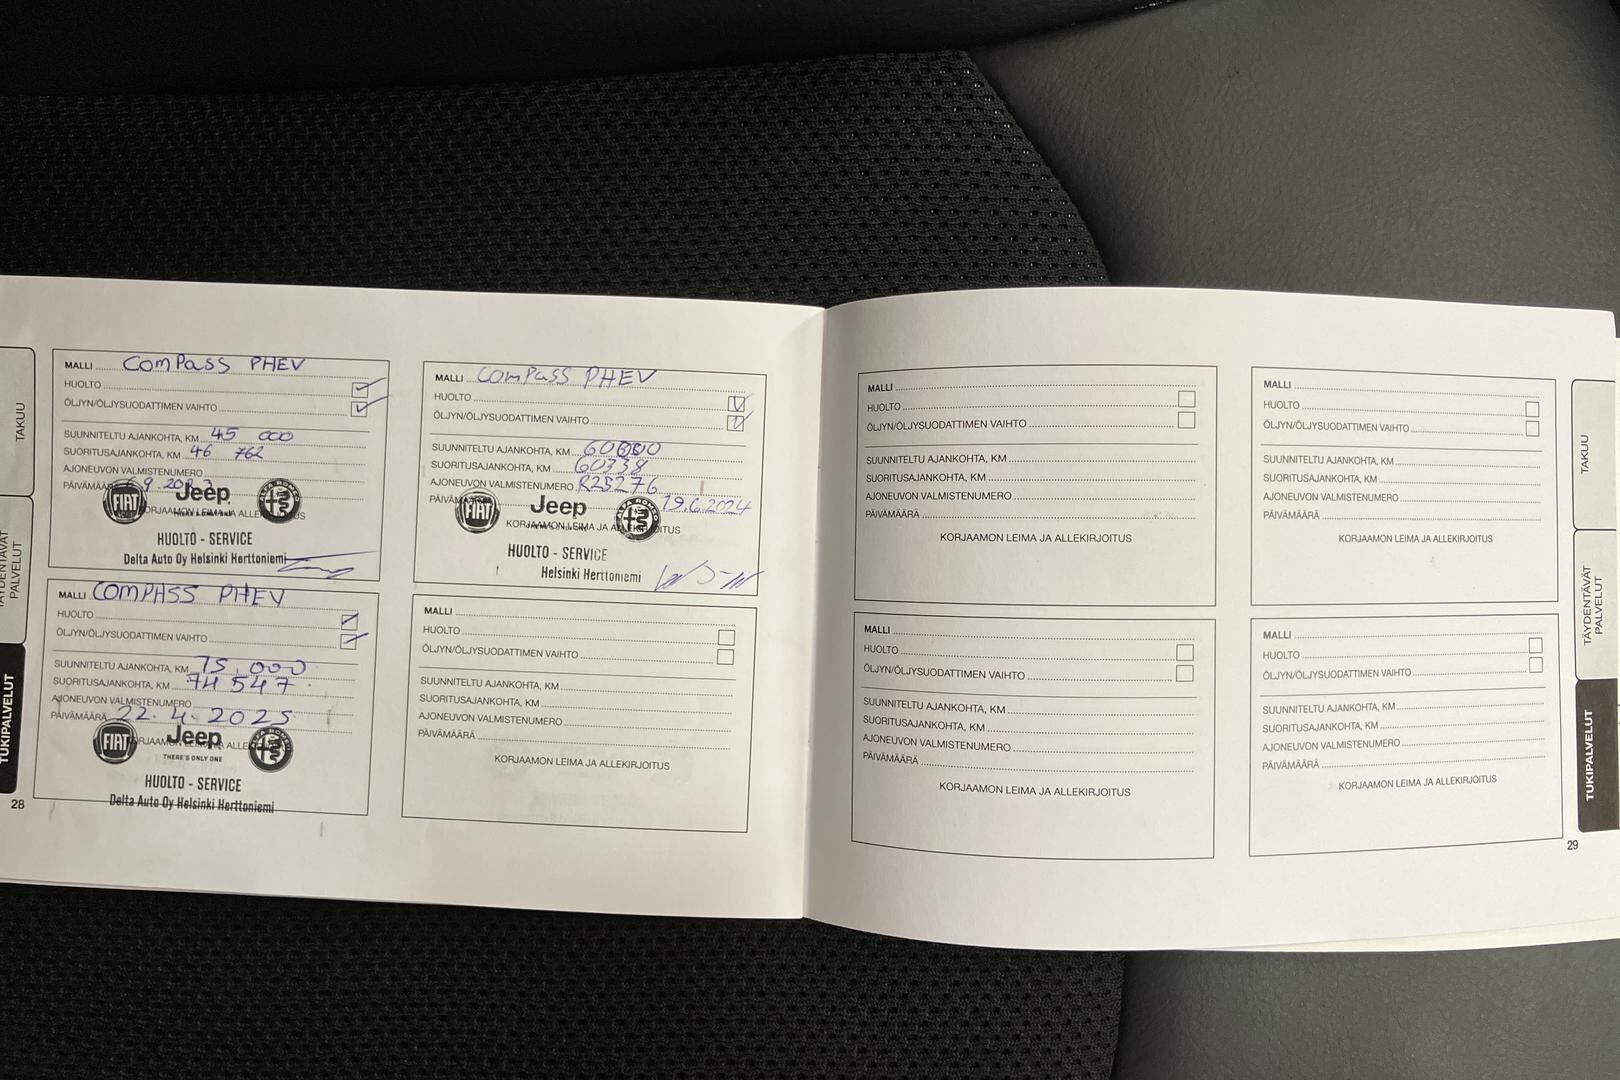 TAKUU
TÄYDENTÄVÄT
PALVELUT
TUKIPALVELUT
MALLI ComPass PHEV
HUOLTO
ÖLJYN/ÖLJYSUODATTIMEN VAIHTO
SUUNNITELTU AJANKOHTA, KM 45 000
SUORITUSAJANKOHTA, KM 46 762
AJONEUVON VALMISTENUMERO
FIAT Jeep ALFA ROMEO
HUOLTO - SERVICE
Delta Auto Oy Helsinki Herttoniemi
MALLI ComPass PHEV
HUOLTO
ÖLJYN/ÖLJYSUODATTIMEN VAIHTO
SUUNNITELTU AJANKOHTA, KM
SUORITUSAJANKOHTA, KM 60338
AJONEUVON VALMISTENUMERO R25276
19.6.2024
FIAT Jeep ALFA ROMEO
KORJAAMON LEIMA JA ALLEKIRJOITUS
HUOLTO - SERVICE
Helsinki Herttoniemi
MALLI COMPASS PHEV
HUOLTO
ÖLJYN/ÖLJYSUODATTIMEN VAIHTO
SUUNNITELTU AJANKOHTA, KM 75.000
SUORITUSAJANKOHTA, KM 74 547
AJONEUVON VALMISTENUMERO
PÄIVÄMÄÄRÄ 22.4.2025
FIAT Jeep ALFA ROMEO
THERE'S ONLY ONE
HUOLTO - SERVICE
Delta Auto Oy Helsinki Herttoniemi
MALLI
HUOLTO
ÖLJYN/ÖLJYSUODATTIMEN VAIHTO
SUUNNITELTU AJANKOHTA, KM
SUORITUSAJANKOHTA, KM
AJONEUVON VALMISTENUMERO
PÄIVÄMÄÄRÄ
KORJAAMON LEIMA JA ALLEKIRJOITUS
28
MALLI
HUOLTO
ÖLJYN/ÖLJYSUODATTIMEN VAIHTO
SUUNNITELTU AJANKOHTA, KM
SUORITUSAJANKOHTA, KM
AJONEUVON VALMISTENUMERO
PÄIVÄMÄÄRÄ
KORJAAMON LEIMA JA ALLEKIRJOITUS
MALLI
HUOLTO
ÖLJYN/ÖLJYSUODATTIMEN VAIHTO
SUUNNITELTU AJANKOHTA, KM
SUORITUSAJANKOHTA, KM
AJONEUVON VALMISTENUMERO
PÄIVÄMÄÄRÄ
KORJAAMON LEIMA JA ALLEKIRJOITUS
MALLI
HUOLTO
ÖLJYN/ÖLJYSUODATTIMEN VAIHTO
SUUNNITELTU AJANKOHTA, KM
SUORITUSAJANKOHTA, KM
AJONEUVON VALMISTENUMERO
PÄIVÄMÄÄRÄ
KORJAAMON LEIMA JA ALLEKIRJOITUS
MALLI
HUOLTO
ÖLJYN/ÖLJYSUODATTIMEN VAIHTO
SUUNNITELTU AJANKOHTA, KM
SUORITUSAJANKOHTA, KM
AJONEUVON VALMISTENUMERO
PÄIVÄMÄÄRÄ
KORJAAMON LEIMA JA ALLEKIRJOITUS
TAKUU
TÄYDENTÄVÄT
PALVELUT
TUKIPALVELUT
29